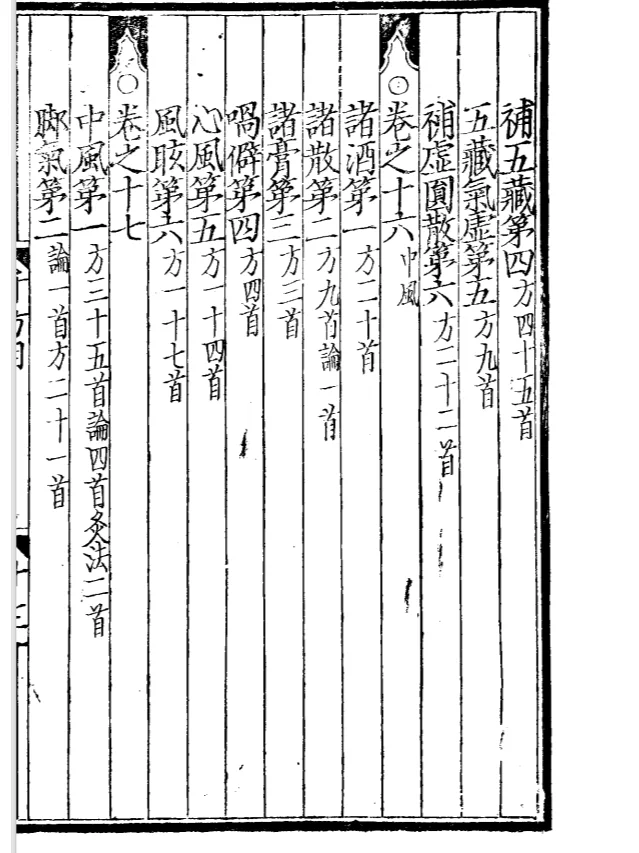 補五藏第四方四十五首
五藏氣虛第五方九首
補虛圓散第六方二十二首
○卷之十六中風
諸酒第一方二十首
諸散第二方九首論一首
諸膏第三方三首
喎僻第四方四首
心風第五方一十四首
風眩第六方一十七首
○卷之十七
中風第一方三十五首論四首灸法二首
脚氣第二論一首方二十一首